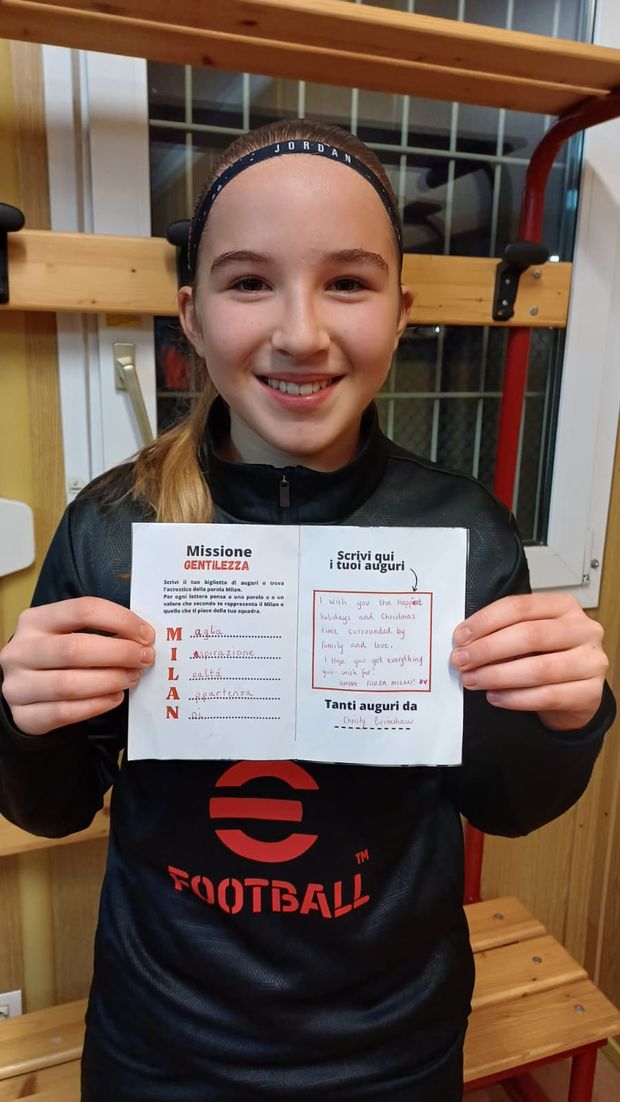 JORDAN
Missione
GENTILEZZA
Scrivi il tuo biglietto di auguri e trova
l'acrostico della parola Milan.
Per ogni lettera pensa a una parola o a un
valore che secondo te rappresenta il Milan o
quello che ti piace della tua squadra.
Maglia
Ispirazione
Lealtá
Appartenza
Noi
Scrivi qui
i tuoi auguri
I wish you the happiest
holidays and Christmas
time surrounded by
family and love.
I Hope you get everything
you wish for!
FORZA MILAN!
Tanti auguri da
Christy Grimshaw
FOOTBALL™